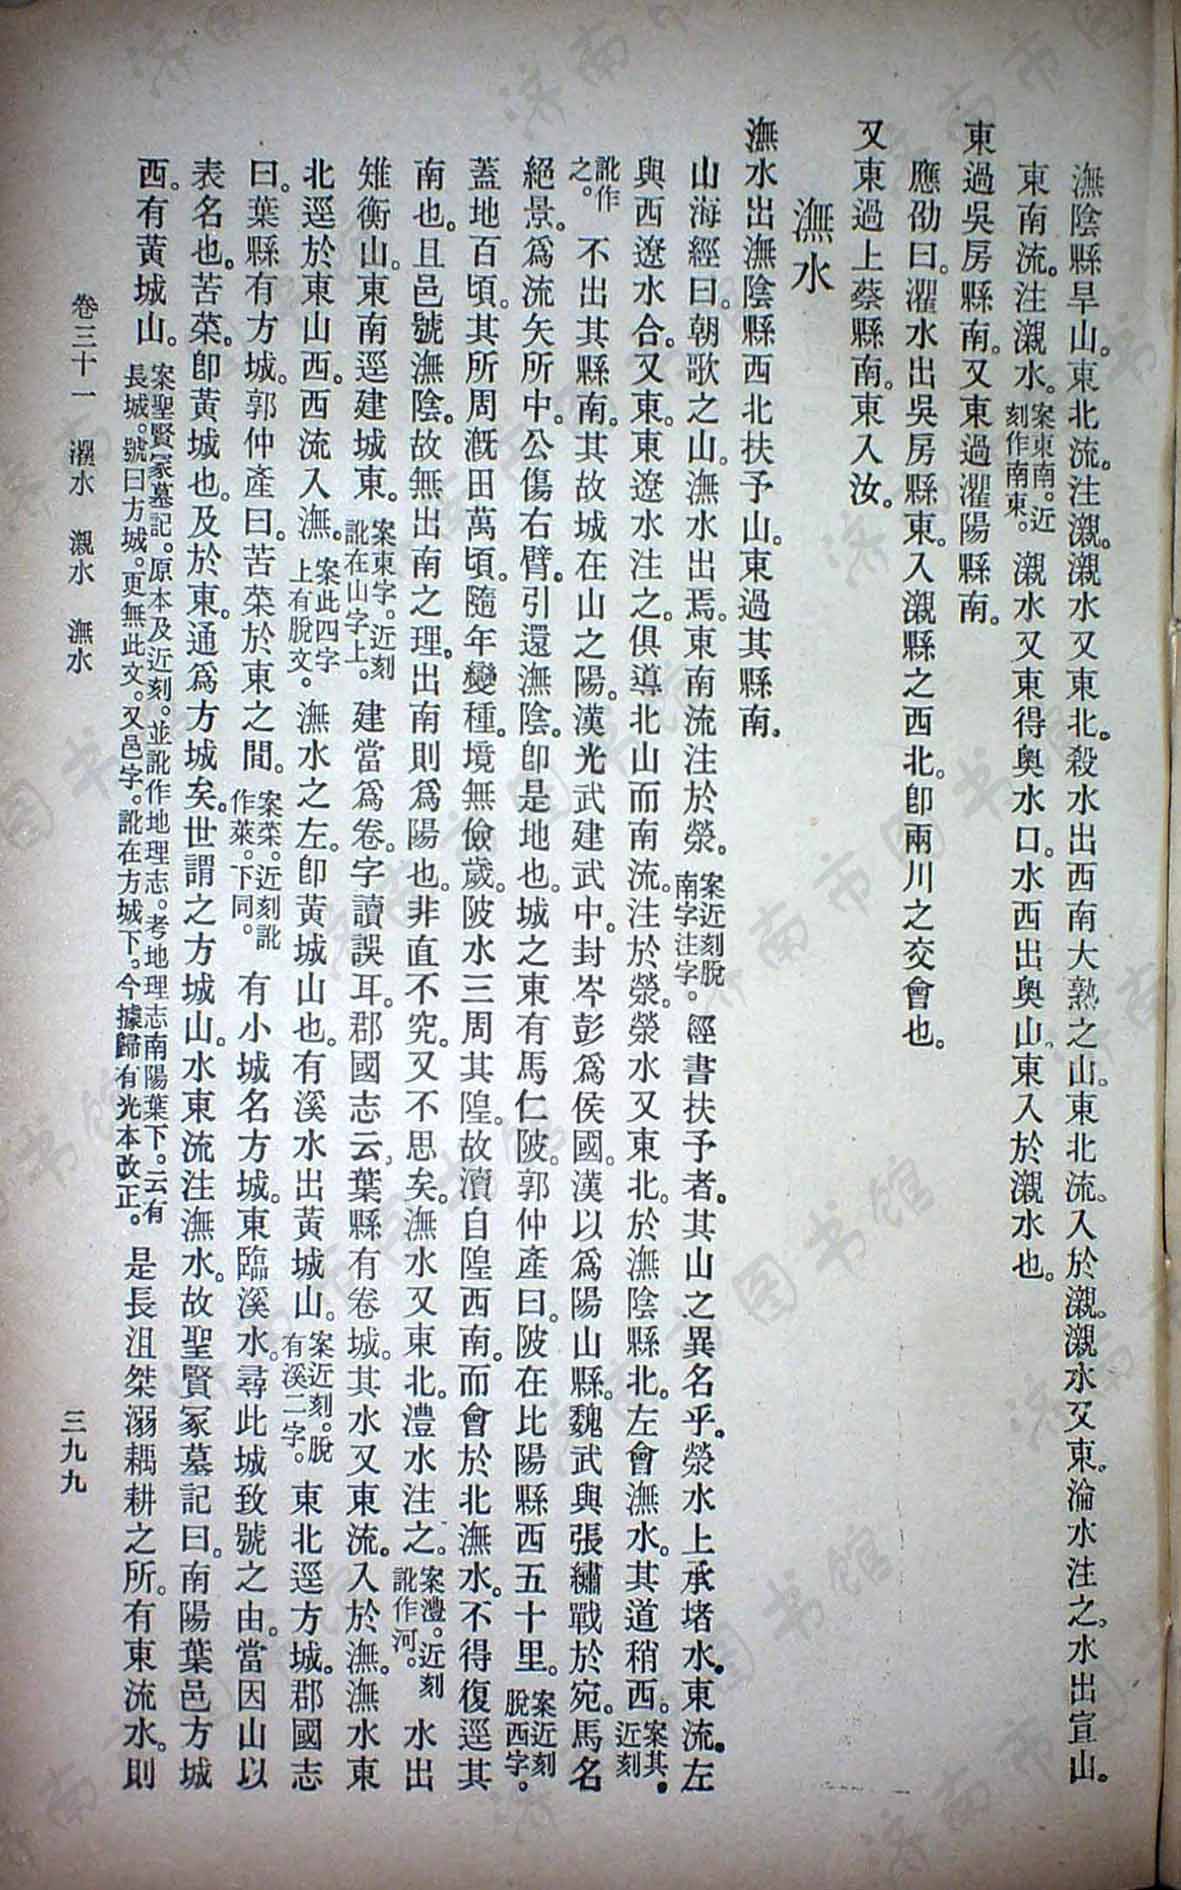 潕陰縣旱山。東北流。注瀙。瀙水又東北。殺水出西南大熟之山。東北流。入於瀙。瀙水又東。淪水注之。水出宣山。
東南流。注瀙水。案東南。近刻作南東。瀙水又東得奧水口。水西出奧山。東入於瀙水也。
東過吳房縣南。又東過濯陽縣南。
應劭曰。濯水出吳房縣東。入瀙縣之西北。卽兩川之交會也。
又東過上蔡縣南。東入汝。
潕水
潕水出潕陰縣西北扶予山。東過其縣南。
山海經曰。朝歌之山。潕水出焉。東南流注於滎。案近刻脫南字注字。經書扶予者。其山之異名乎。滎水上承堵水。東流。左
與西遼水合。又東。東遼水注之。俱導北山而南流。注於滎。滎水又東北。於潕陰縣北。左會潕水。其道稍西。案其。近刻
訛作之。不出其縣南。其故城在山之陽。漢光武建武中。封岑彭爲侯國。漢以爲陽山縣。魏武與張繡戰於宛。馬名
絕景。爲流矢所中。公傷右臂。引還潕陰。卽是地也。城之東有馬仁陂。郭仲產曰。陂在比陽縣西五十里。案近刻脫西字。
蓋地百頃。其所周漑田萬頃。隨年變種。境無儉歲。陂水三周其隍。故瀆自隍西南。而會於北潕水。不得復逕其
南也。且邑號潕陰。故無出南之理。出南則爲陽也。非直不究。又不思矣。潕水又東北。澧水注之。案澧。近刻訛作河。水出
雉衡山。東南逕建城東。案東字。近刻訛在山字上。建當爲卷。字讀誤耳。郡國志云。葉縣有卷城。其水又東流。入於潕。潕水東
北逕於東山西。西流入潕。案此四字上有脫文。潕水之左。卽黃城山也。有溪水出黃城山。案近刻。脫有溪二字。東北逕方城。郡國志
曰。葉縣有方城。郭仲產曰。苦菜於東之間。案菜。近刻訛作萊。下同。有小城名方城。東臨溪水。尋此城致號之由。當因山以
表名也。苦菜。卽黃城也。及於東。通爲方城矣。世謂之方城山。水東流注潕水。故聖賢冢墓記曰。南陽葉邑方城
西。有黃城山。案聖賢冢墓記。原本及近刻。並訛作地理志。考地理志南陽葉下。云有長城。號曰方城。更無此文。又邑字。訛在方城下。今據歸有光本改正。是長沮桀溺耦耕之所。有東流水。則
卷三十一 灈水 瀙水 潕水
三九九